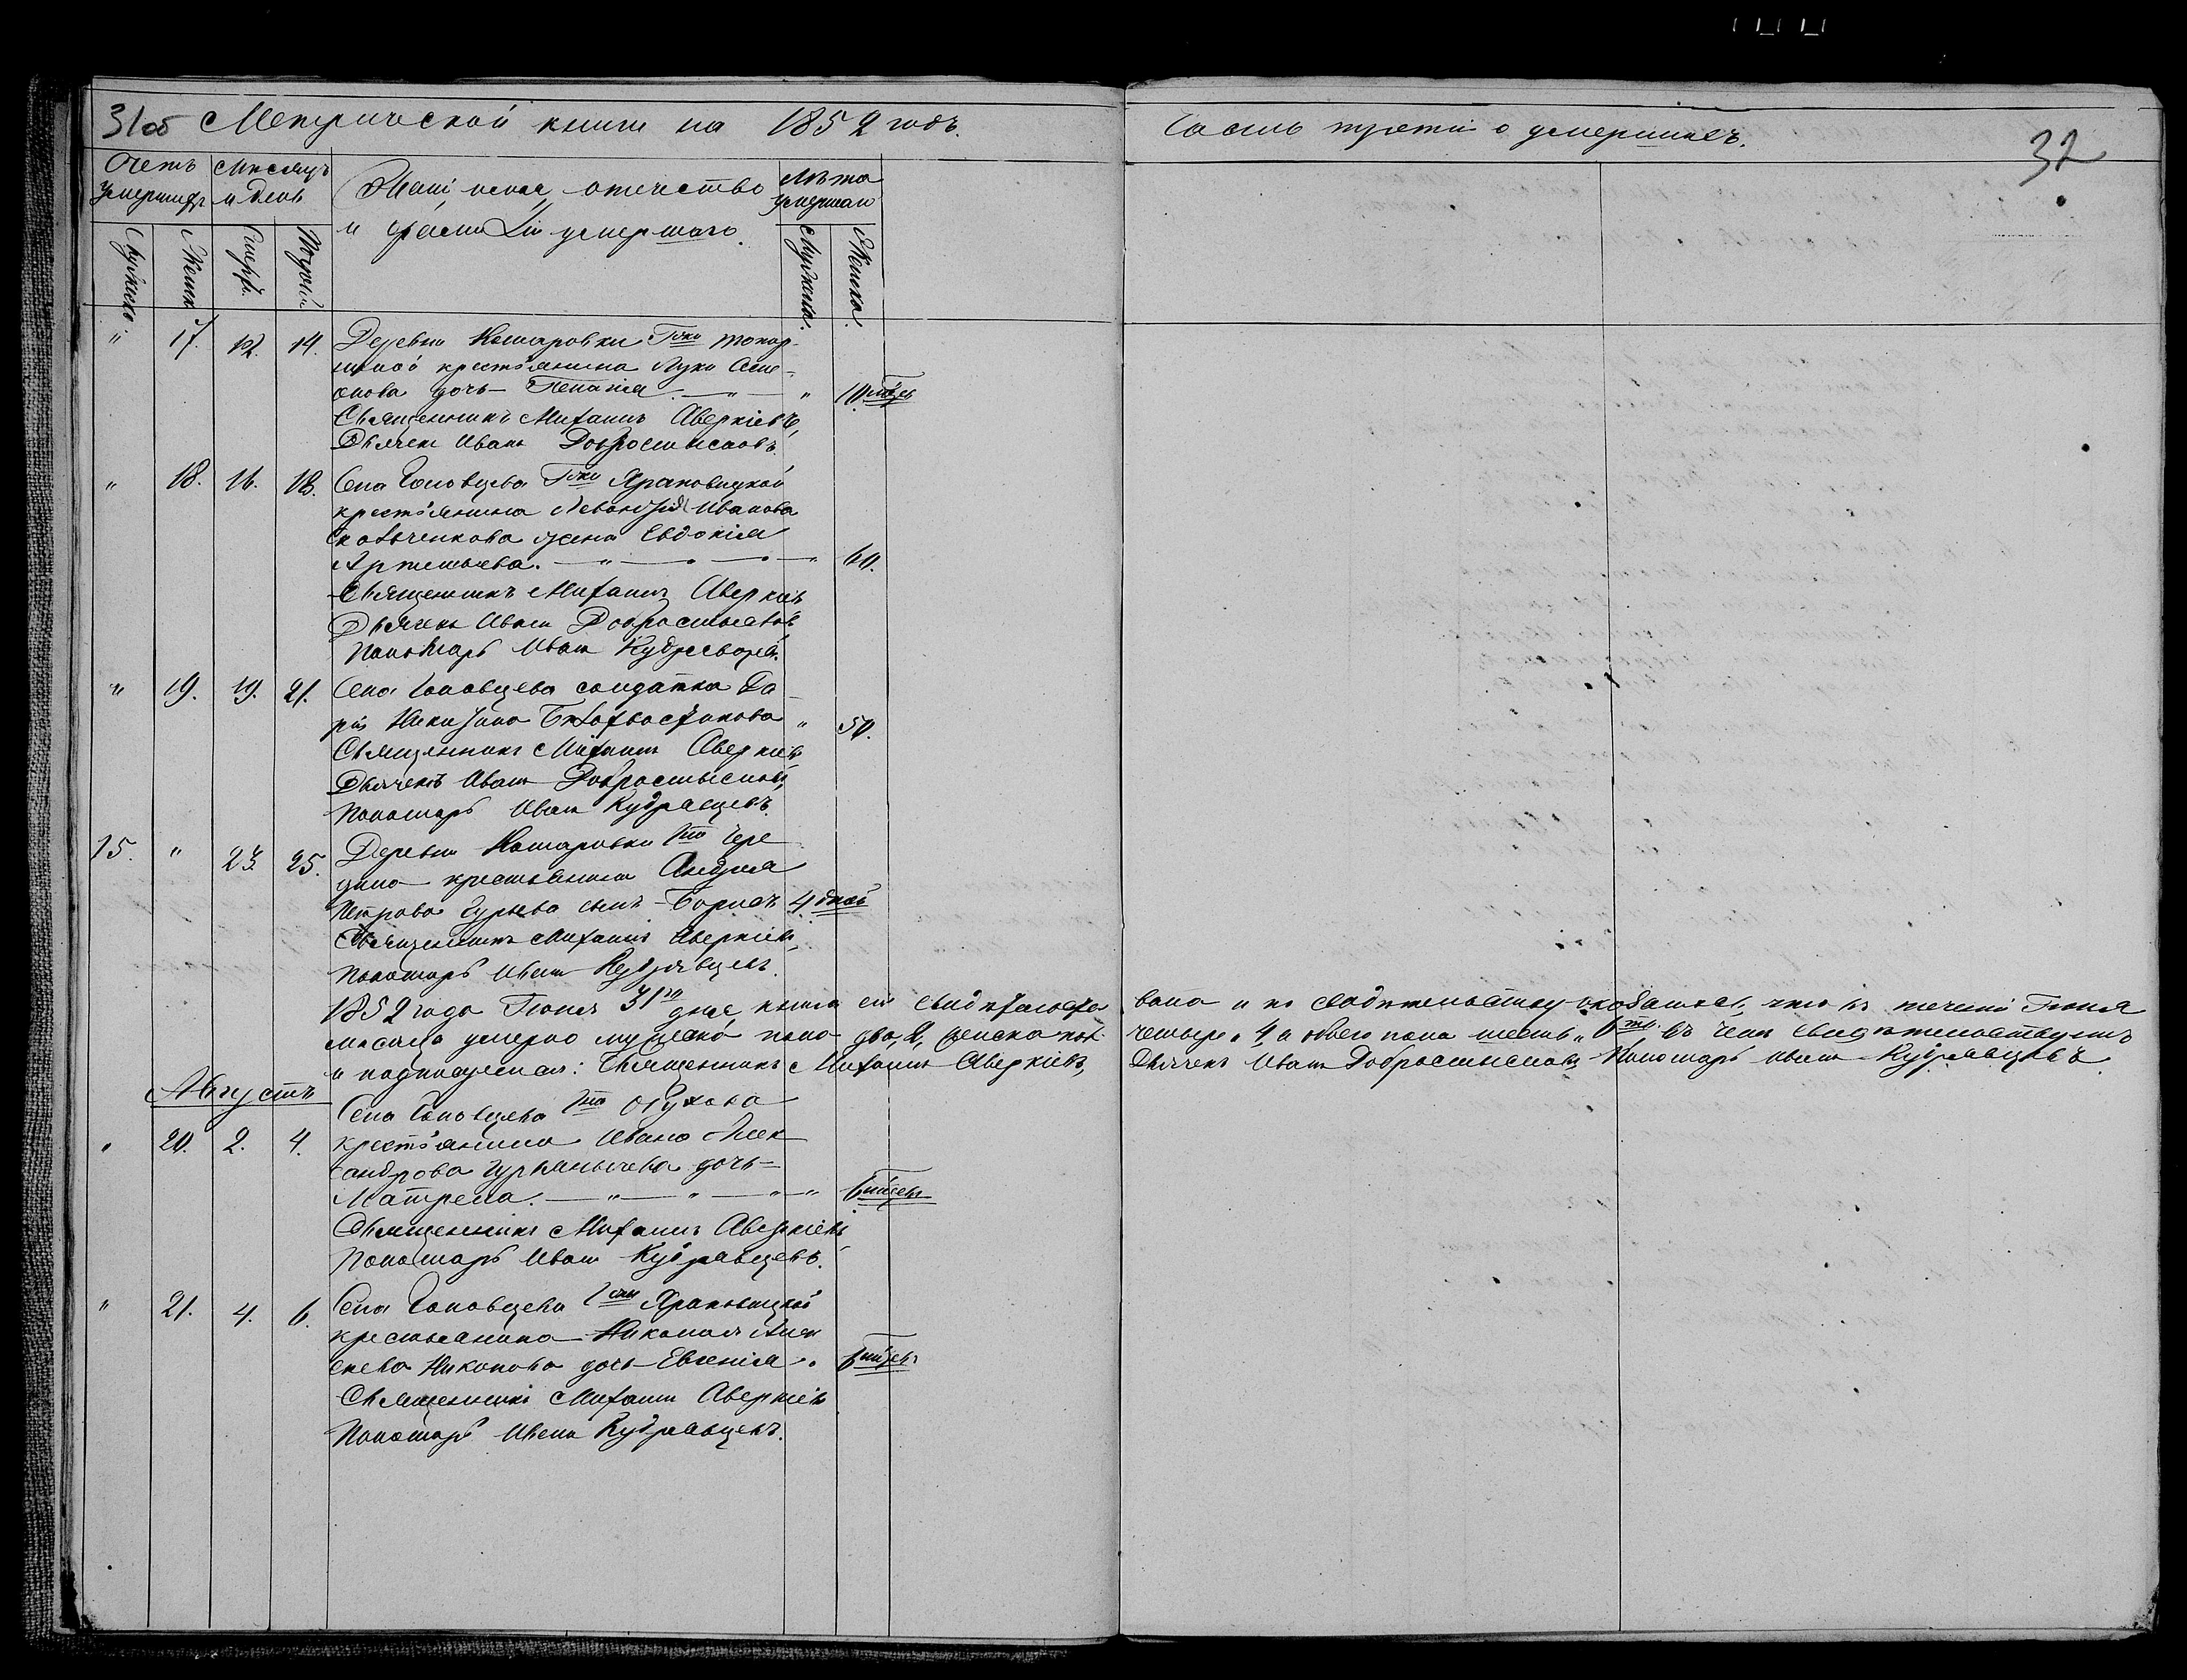 31 об Метрической книги на 1852 годъ.
Часть третiя о умершихъ.
32
Счетъ умершихъ
Мѣсяцъ и день
Званiе, имя, отчество
и фамилiя умершаго.
Лѣта умершаго
Мужеска.
Женск.
Смерт.
Погреб.
Мужеска.
Женска.
" 17. 12. 14. Деревни Комаровки Гжи
крестьянина Луки Семе-
онова дочь — " — " 10 мѣсц
Священникъ Михаилъ Аверкiевъ,
Дьячекъ Иванъ Добросмысловъ.
" 18. 16. 18. Села Головцева Гжи Храповицкой
крестьянина Иванова
жена Евдокiя
Артемьева. — " — " — " 60.
Священникъ Михаилъ Аверкiевъ
Дьячекъ Иванъ Добросмысловъ
Пономарь Иванъ Кудрявцевъ.
" 19. 19. 21. Села Головцева солдатка Да-
рiя Никитина " 50.
Священникъ Михаилъ Аверкiевъ
Дьячекъ Иванъ Добросмысловъ,
Пономарь Иванъ Кудрявцевъ.
15. " 23. 25. Деревни Комаровки Гна
крестьянина Андрея
Петрова Гурьева сынъ — Борисъ 4 дней
Священникъ Михаилъ Аверкiевъ,
Пономарь Иванъ Кудрявцевъ.
1852 года Iюля 31го дня, книга сiя свидѣтельство-
вана и по свидѣтельству оказалось, что въ теченiи Iюля
мѣсяца умерло мужеска пола два, 2, женска пол.
четыре, 4, а обоего пола шесть, 6ть. Въ чемъ свидѣтельствуемъ
и подписуемся: Священникъ Михаилъ Аверкiевъ,
Дьячекъ Иванъ Добросмысловъ, Пономарь Иванъ Кудрявцевъ.
Августъ
Села Головцева Гна
" 20. 2. 4. крестьянина Ивана Алек-
сандрова дочь —
Матрена. — " — " — " — " 6 мѣсцевъ
Священникъ Михаилъ Аверкiевъ
Пономарь Иванъ Кудрявцевъ.
" 21. 4. 6. Села Головцева Гжи Храповицкой
крестьянина Николая Алек-
сеева Никонова дочь — Евгенiя " 6 мѣсцевъ
Священникъ Михаилъ Аверкiевъ
Пономарь Иванъ Кудрявцевъ.